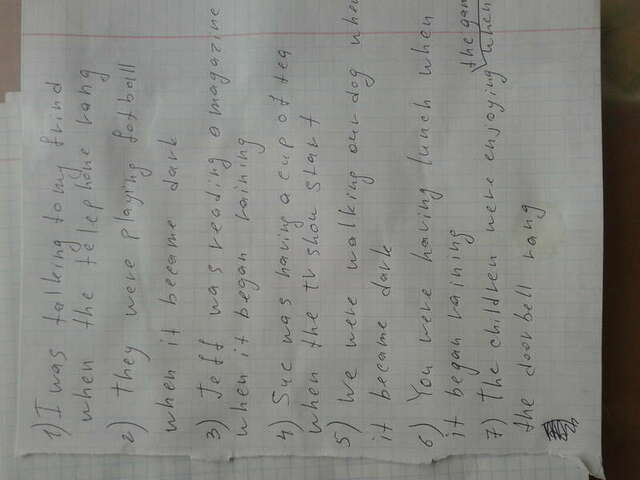 1) I was talking to my frind
when the telephone rang
2) They were playing fotball
when it became dark
3) Jeff was reading a magazine
when it began raining
4) Sue was having a cup of tea
when the tv show start
5) We were walking our dog when
it became dark
6) You were having lunch when
it began raining
the gam
7) The children were enjoying when
the doorbell rang